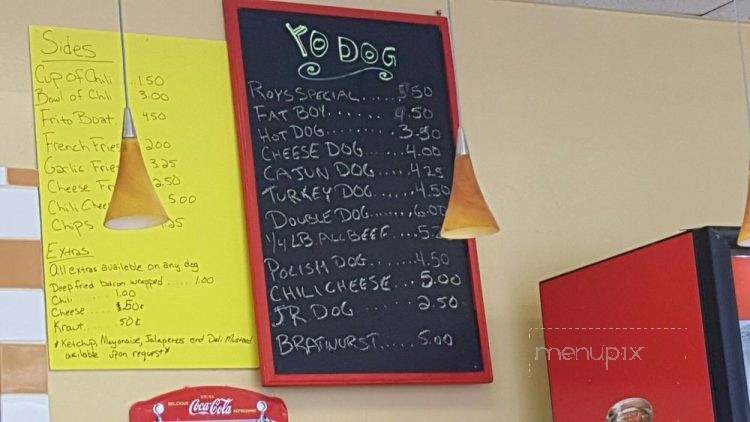 Sides
Cup of Chili ....150
Bowl of Chili 3.00
Frito Boat 450
French Fries 200
Garlic Fries 3.25
Cheese Fr 2.50
Chili Chee 5.00
Chips .25
Extras
All extras available on any dog
Deep fried bacon wrapped ..... 1.00
Chili 1.00
Cheese .50¢
Kraut 50¢
*Ketchup, Mayonaise, Jalapenos and Deli Mustard
available upon request*
YO DOG
ROYS SPECIAL..... 5.50
FAT BOY....... 4.50
HOT DOG....... 3.50
CHEESE DOG.....4.00
CAJUN DOG.....4.25
TURKEY DOG.....4.50
DOUBLE DOG......6.00
1/4 LB. ALL BEEF...
POLISH DOG....4.50
CHILI CHEESE...5.00
JR DOG ....2.50
BRATWURST.....5.00
DRINK
DELICIOUS Coca-Cola REFRESHING
menupix